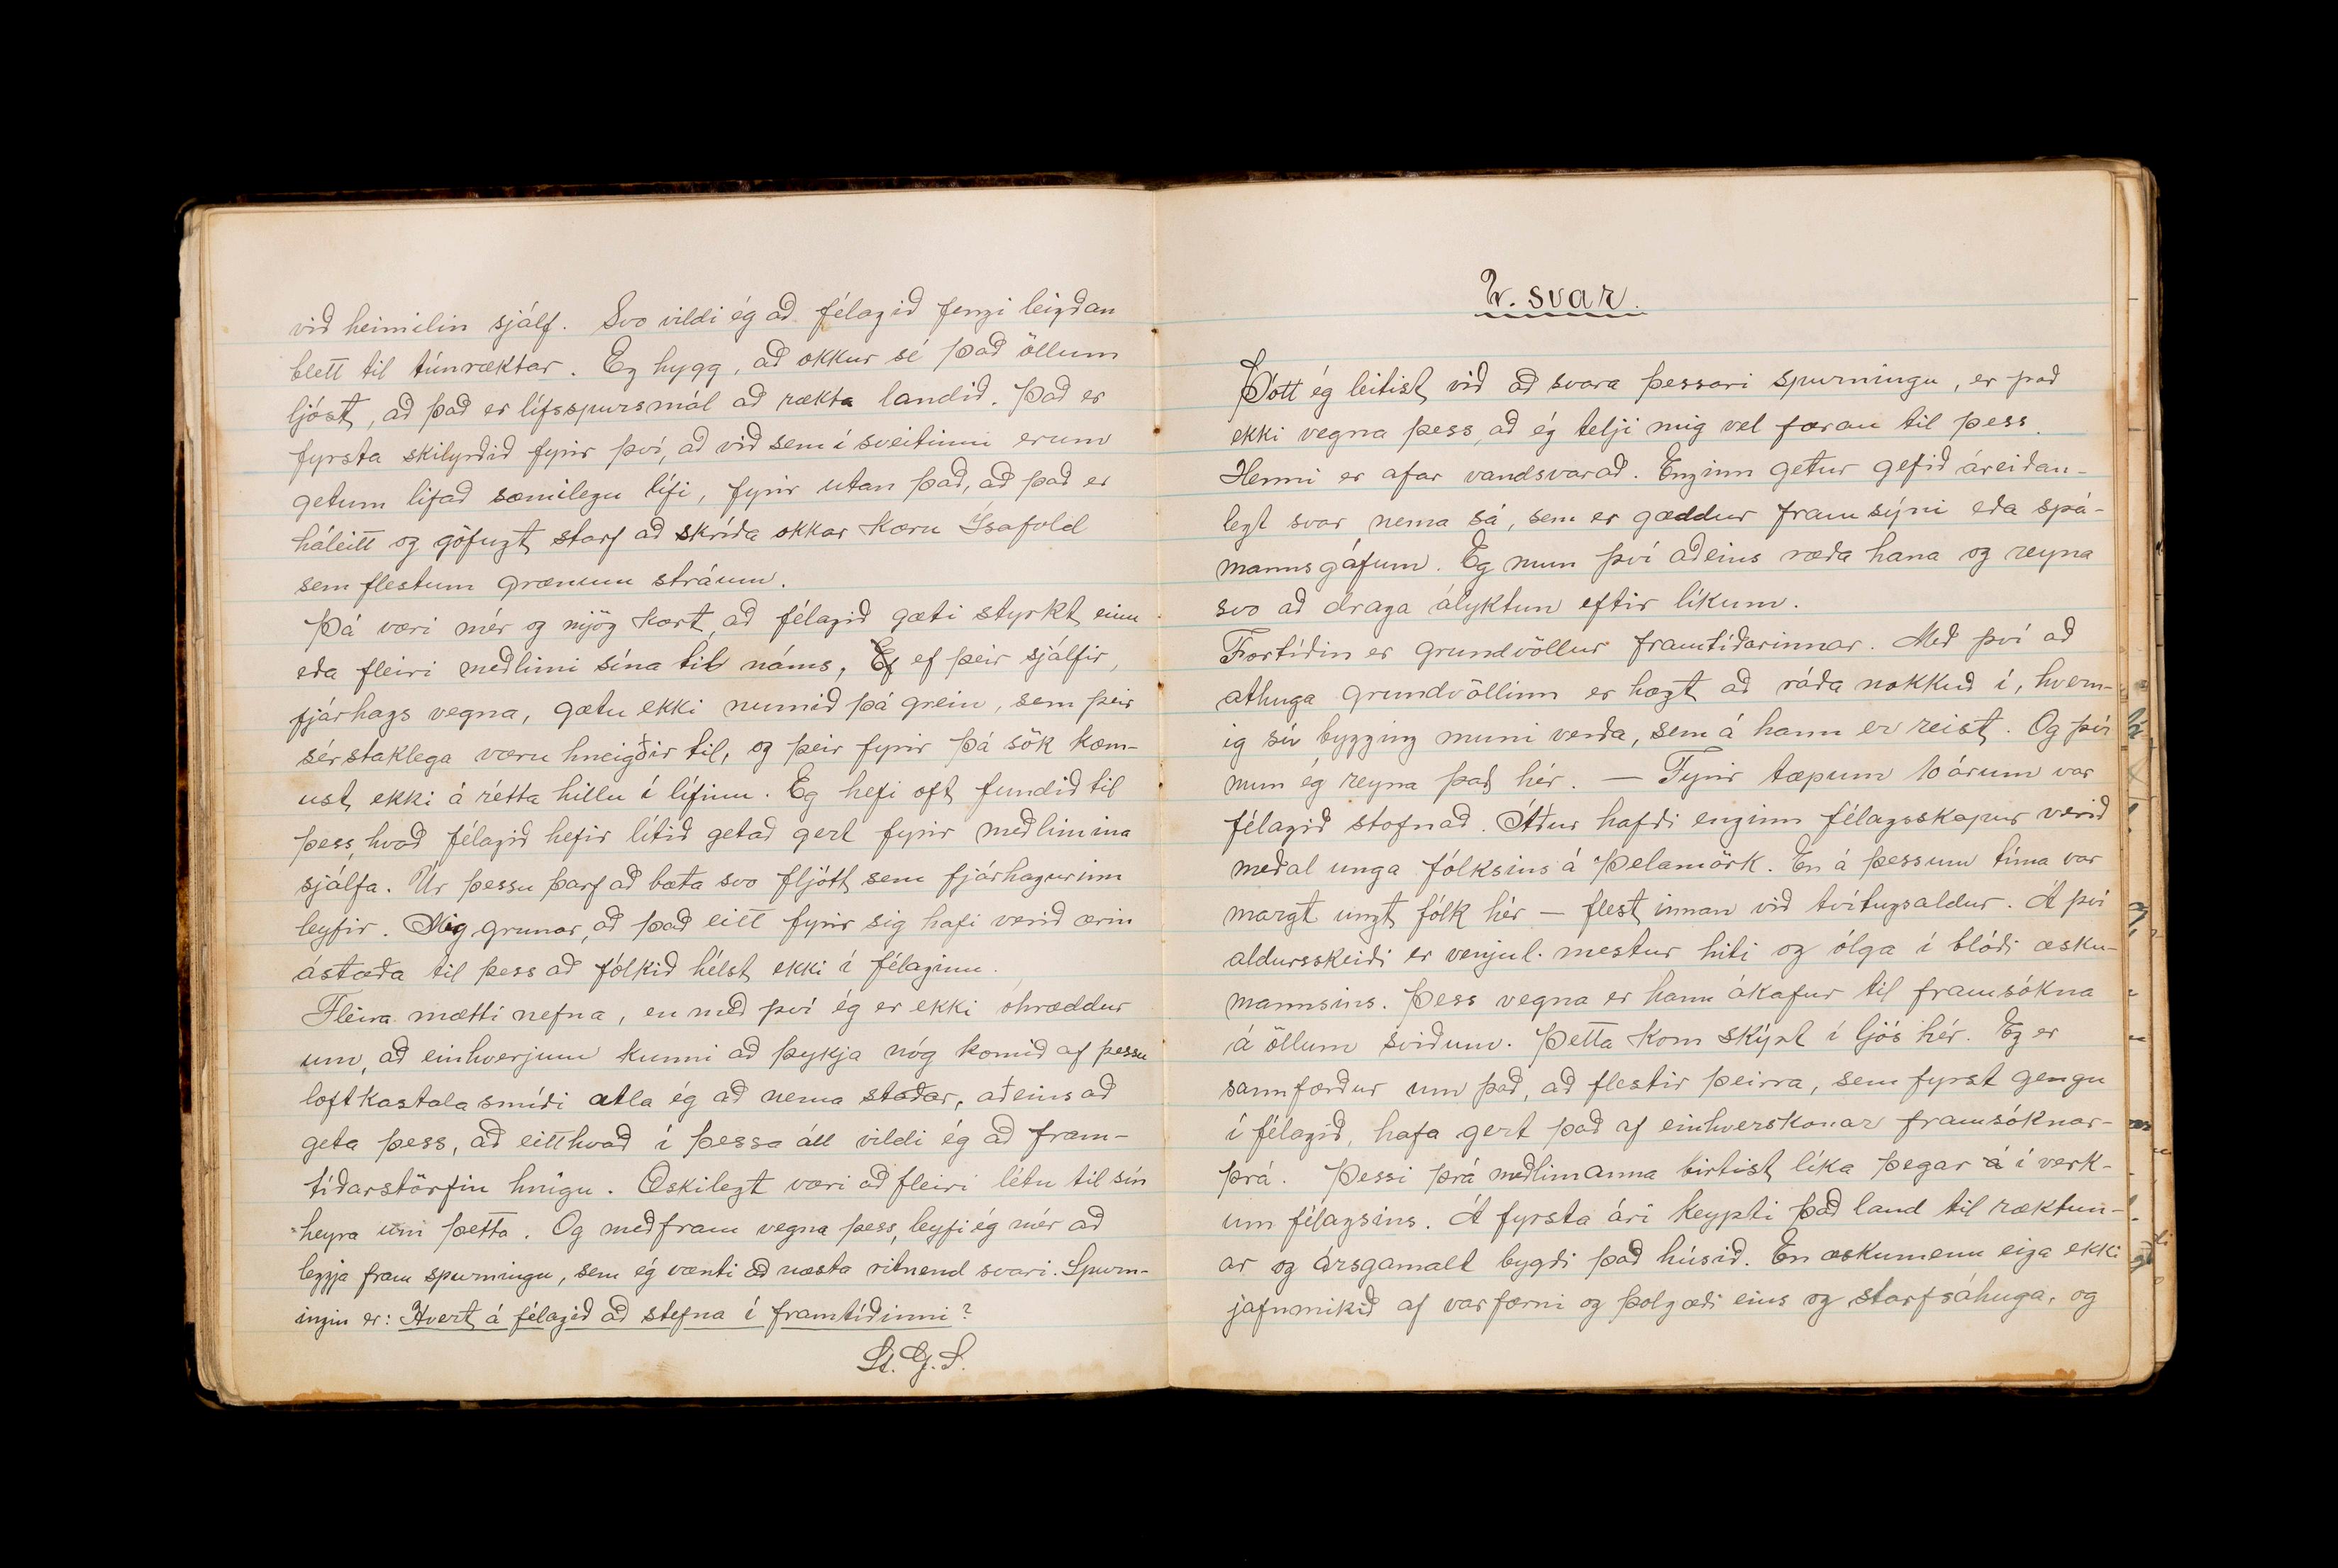 við heimilin sjálf. Svo vildi ég að félagið fengi leigðan
blett til túnræktar. Eg hygg, að okkur sé það öllum
ljóst, að það er lífsspursmál að rækta landið. Það er
fyrsta skilyrðið fyrir því, að við sem í sveitinni erum
getum lifað sæmilegu lífi, fyrir utan það, að það er
háleitt og göfugt starf að skrýða okkar kæru Ísafold
sem flestum grænum stráum.
Þá væri mér og mjög kært, að félagið gæti styrkt einn
eða fleiri meðlimi sína til náms, ef þeir sjálfir,
fjárhags vegna, gætu ekki numið þá grein, sem þeir
sérstaklega væru hneigðir til, og þeir fyrir þá sök kæm-
ust ekki á rétta hillu í lífinu. Eg hefi oft fundið til
þess, hvað félagið hefir lítið getað gert fyrir meðlimina
sjálfa. Úr þessu þarf að bæta svo fljótt sem fjárhagurinn
leyfir. Mig grunar, að það eitt fyrir sig hafi verið ærin
ástæða til þess að fólkið hélst ekki í félaginu.
Fleira mætti nefna, en með því ég er ekki óhræddur
um, að einhverjum kunni að þykja nóg komið af þessu
loftkastala smíði ætla ég að nema staðar, aðeins að
geta þess, að eitthvað í þessa átt vildi ég að fram-
tíðarstörfin hnigu. Æskilegt væri að fleiri létu til sín
heyra um þetta. Og meðfram vegna þess, leyfi ég mér að
leggja fram spurningu, sem ég vænti að næsta ritnend svari. Spurn-
ingin er: Hvert á félagið að stefna í framtíðinni?
St. G. S.
2. svar.
Þótt ég leitist við að svara þessari spurningu, er það
ekki vegna þess, að ég telji mig vel færan til þess.
Henni er afar vandsvarað. Enginn getur gefið áreiðan-
legt svar nema sá, sem er gæddur framsýni eða spá-
mannsgáfum. Eg mun því aðeins ræða hana og reyna
svo að draga ályktun eftir líkum.
Fortíðin er grundvöllur framtíðarinnar. Með því að
athuga grundvöllinn er hægt að ráða nokkuð í, hvern-
ig sú bygging muni verða, sem á hann er reist. Og því
mun ég reyna það hér. — Fyrir tæpum 10 árum var
félagið stofnað. Áður hafði enginn félagsskapur verið
meðal unga fólksins á Þelamörk. En á þessum tíma var
margt ungt fólk hér — flest innan við tvítugsaldur. Á því
aldursskeiði er venjul. mestur hiti og ólga í blóði æsku-
mannsins. Þess vegna er hann ákafur til framsókna
á öllum sviðum. Þetta kom skýrt í ljós hér. Eg er
sannfærður um það, að flestir þeirra, sem fyrst gengu
í félagið, hafa gert það af einhverskonar framsóknar-
þrá. Þessi þrá meðlimanna birtist líka þegar á í verk-
um félagsins. Á fyrsta ári keypti það land til ræktun-
ar og ársgamalt bygði það húsið. En æskumenn eiga ekki
jafnmikið af varfærni og þolgæði eins og starfsáhuga, og